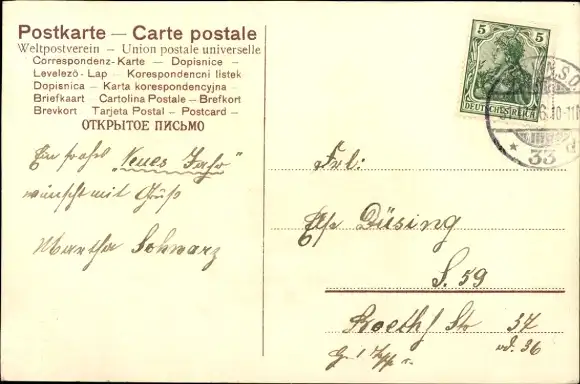 Postkarte — Carte postale
Weltpostverein — Union postale universelle
Correspondenz-Karte — Dopisnice —
Levelező-Lap — Korespondencni listek
Dopisnica — Karta korespondencyjna —
Briefkaart Cartolina Postale — Brefkort
Brevkort Tarjeta Postal — Postcard —
ОТКРЫТОЕ ПИСЬМО
Ein frohes „Neues Jahr"
wünscht mit Gruß
Martha Schwarz
5 5
DEUTSCHES REICH
10-11
* 33
Frl:
Else Düsing
S. 59
Str 37
od. 36